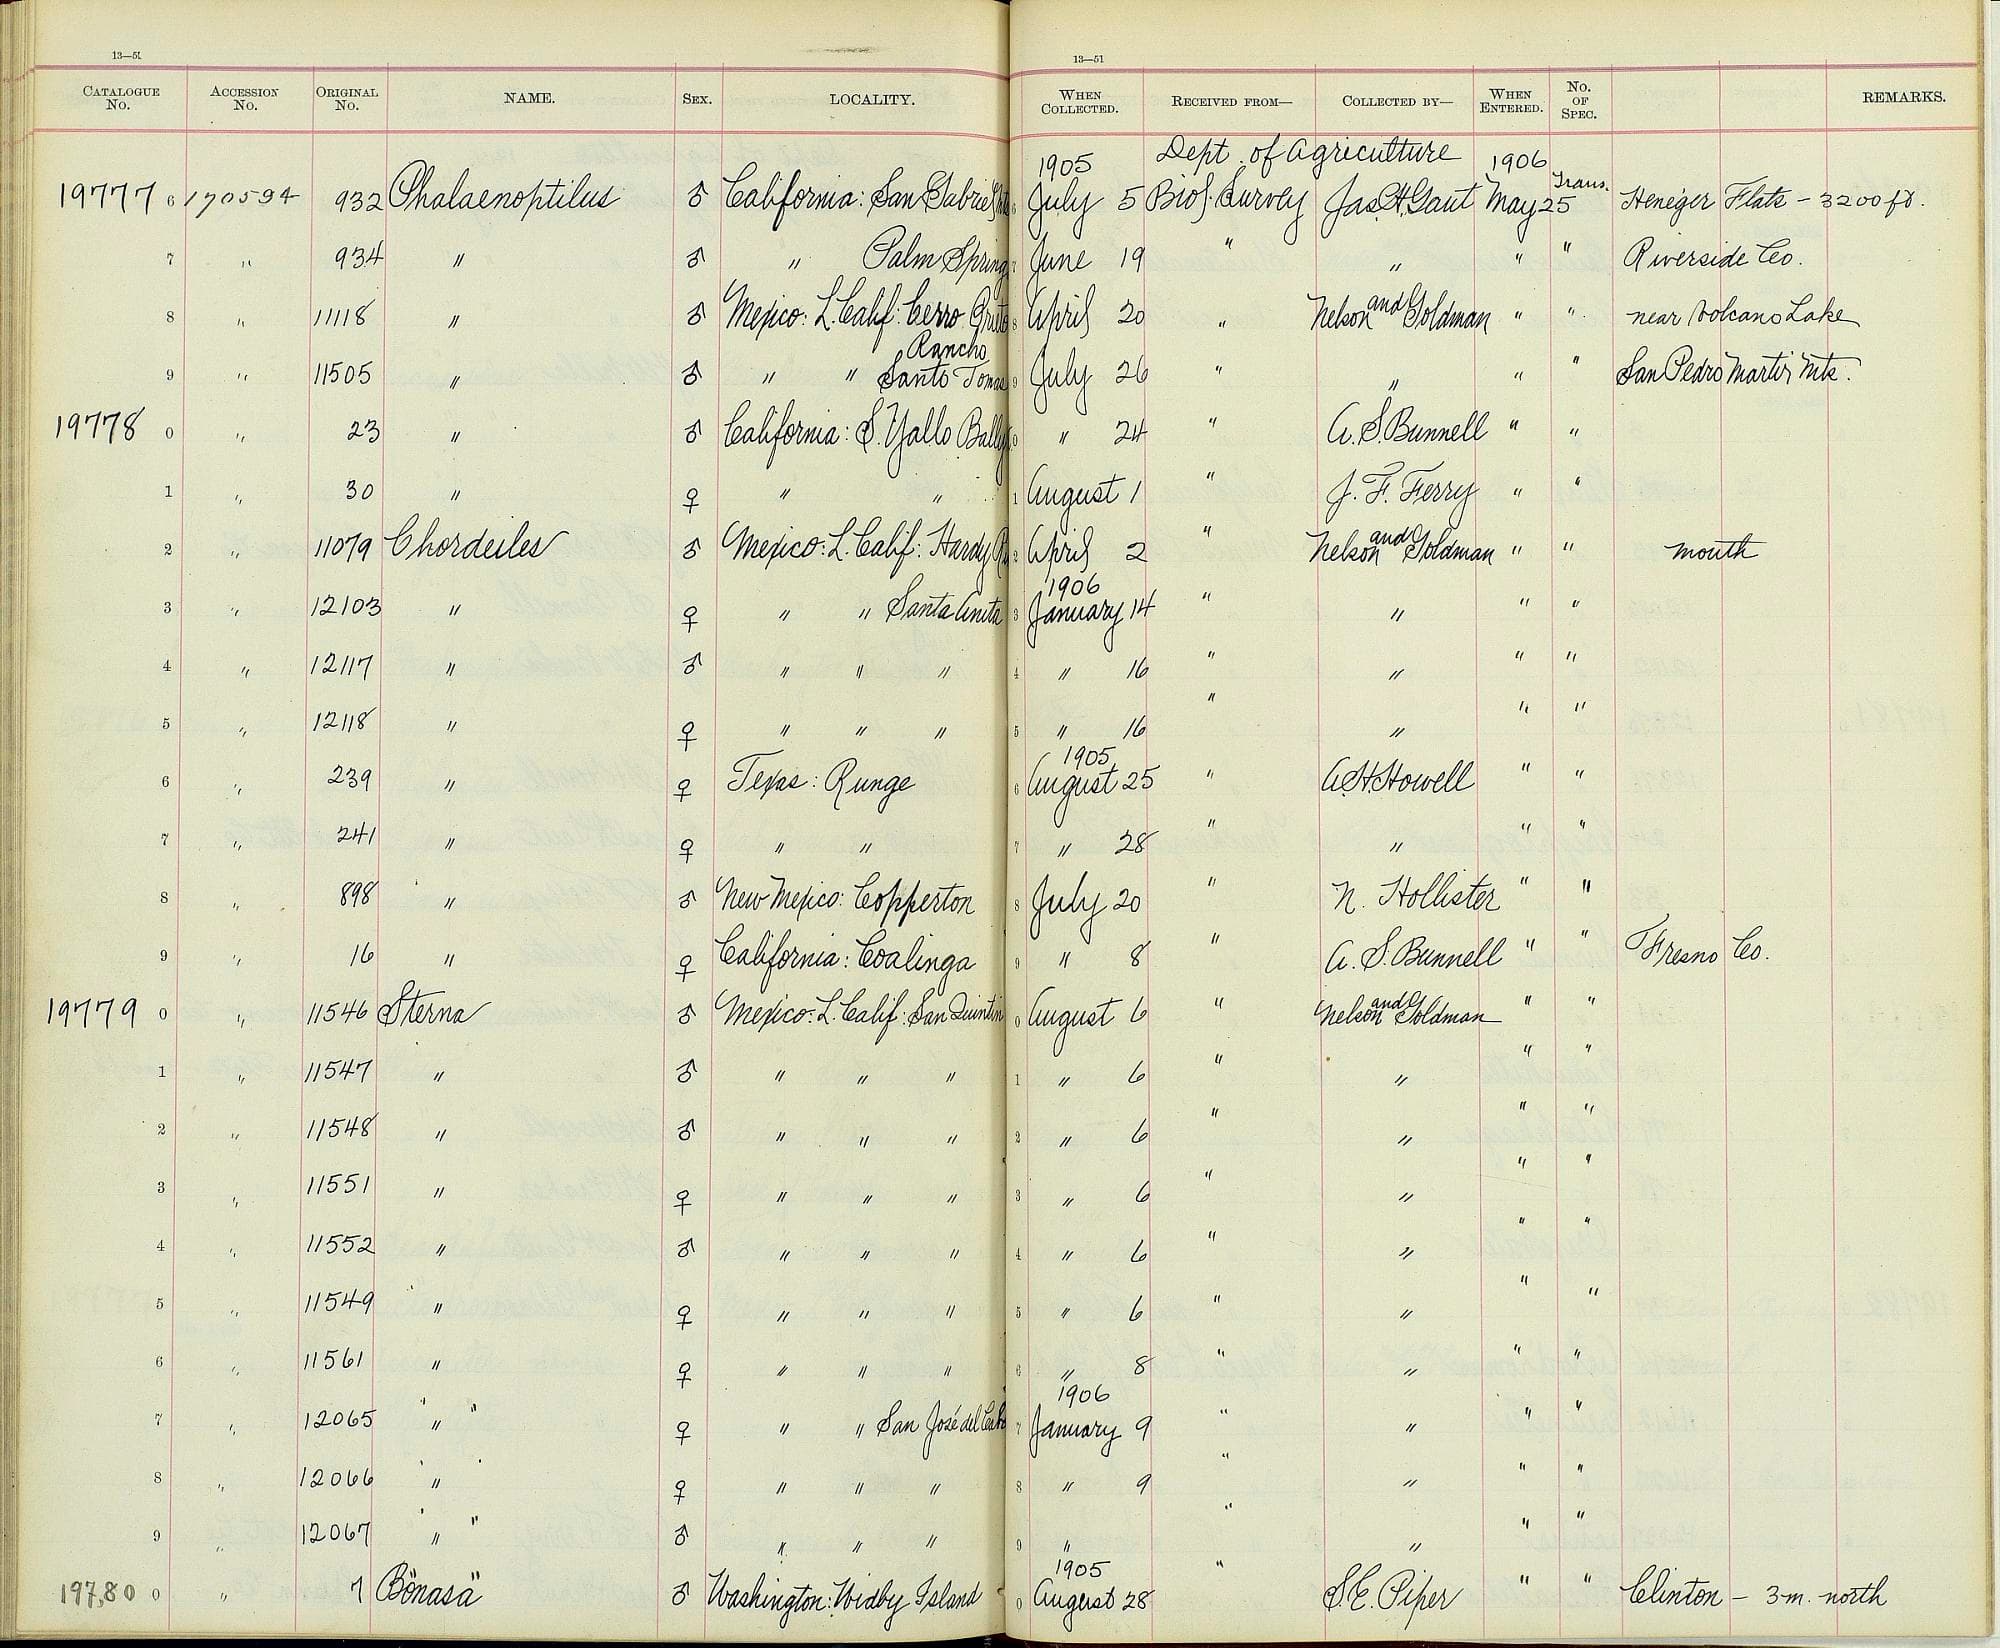 13—51 13—51
CATALOGUE No. ACCESSION No. ORIGINAL No. NAME. SEX. LOCALITY. WHEN COLLECTED. RECEIVED FROM— COLLECTED BY— WHEN ENTERED. No. OF SPEC. REMARKS.
1905 Dept. of Agriculture 1906
19777 6 170594 932 Phalaenoptilus ♂ California: San Gabriel 6 July 5 Biol. Survey Jas. H. Gaut May 25 Trans. Heniger Flats – 3200 ft.
7 " 934 " ♂ " Palm Spring 7 June 19 " " " " Riverside Co.
8 " 11118 " ♂ Mexico: L. Calif: Cerro Prieto 8 April 20 " Nelson and Goldman " " near Volcano Lake
9 " 11505 " ♂ " " Rancho Santo Tomas 9 July 26 " " " " San Pedro Martir Mts.
19778 0 " 23 " ♂ California: S. Yallo Bally 0 " 24 " A. S. Bunnell " "
1 " 30 " ♀ " " 1 August 1 " J. F. Ferry " "
2 " 11079 Chordeiles ♂ Mexico: L. Calif: Hardy 2 April 2 " Nelson and Goldman " " mouth
1906
3 " 12103 " ♀ " " Santa Anita 3 January 14 " " " "
4 " 12117 " ♂ " " " 4 " 16 " " " "
5 " 12118 " ♀ " " " 5 " 16 " " " "
1905
6 " 239 " ♀ Texas: Runge 6 August 25 " A. H. Howell " "
7 " 241 " ♀ " " 7 " 28 " " " "
8 " 898 " ♂ New Mexico: Copperton 8 July 20 " N. Hollister " "
9 " 16 " ♀ California: Coalinga 9 " 8 " A. S. Bunnell " " Fresno Co.
19779 0 " 11546 Sterna ♂ Mexico: L. Calif: San Quintin 0 August 6 " Nelson and Goldman " "
1 " 11547 " ♂ " " " 1 " 6 " " " "
2 " 11548 " ♂ " " " 2 " 6 " " " "
3 " 11551 " ♀ " " " 3 " 6 " " " "
4 " 11552 " ♂ " " " 4 " 6 " " " "
5 " 11549 " ♀ " " " 5 " 6 " " " "
6 " 11561 " ♀ " " " 6 " 8 " " " "
1906
7 " 12065 " ♀ " " San José del Cabo 7 January 9 " " " "
8 " 12066 " ♀ " " " 8 " 9 " " " "
9 " 12067 " ♂ " " " 9 " " " " "
1905
19780 0 " 7 Bonasa ♂ Washington: Widby Island 0 August 28 " S. E. Piper " " Clinton – 3 m. north